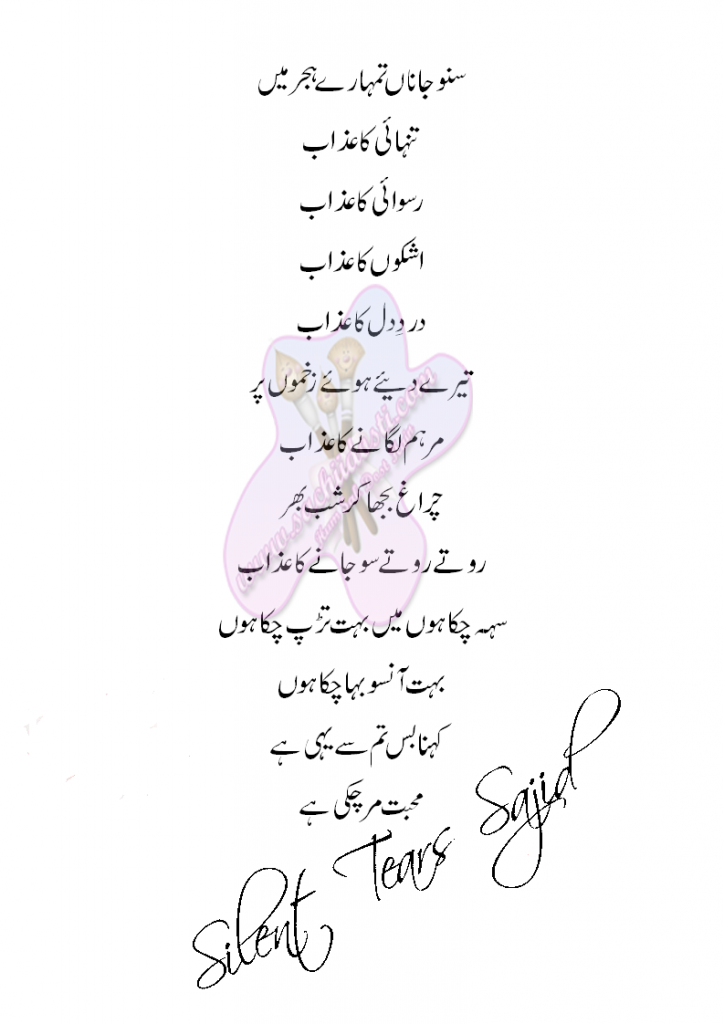 سنو جاناں تمہارے ہجر میں
تنہائی کا عذاب
رسوائی کا عذاب
اشکوں کا عذاب
دردِ دل کا عذاب
تیرے دیئے ہوئے زخموں پر
مرہم لگانے کا عذاب
چراغ بجھا کر شب بھر
روتے روتے سو جانے کا عذاب
سہہ چکا ہوں میں بہت تڑپ چکا ہوں
بہت آنسو بہا چکا ہوں
کہنا بس تم سے یہی ہے
محبت مر چکی ہے
Silent Tears Sajid